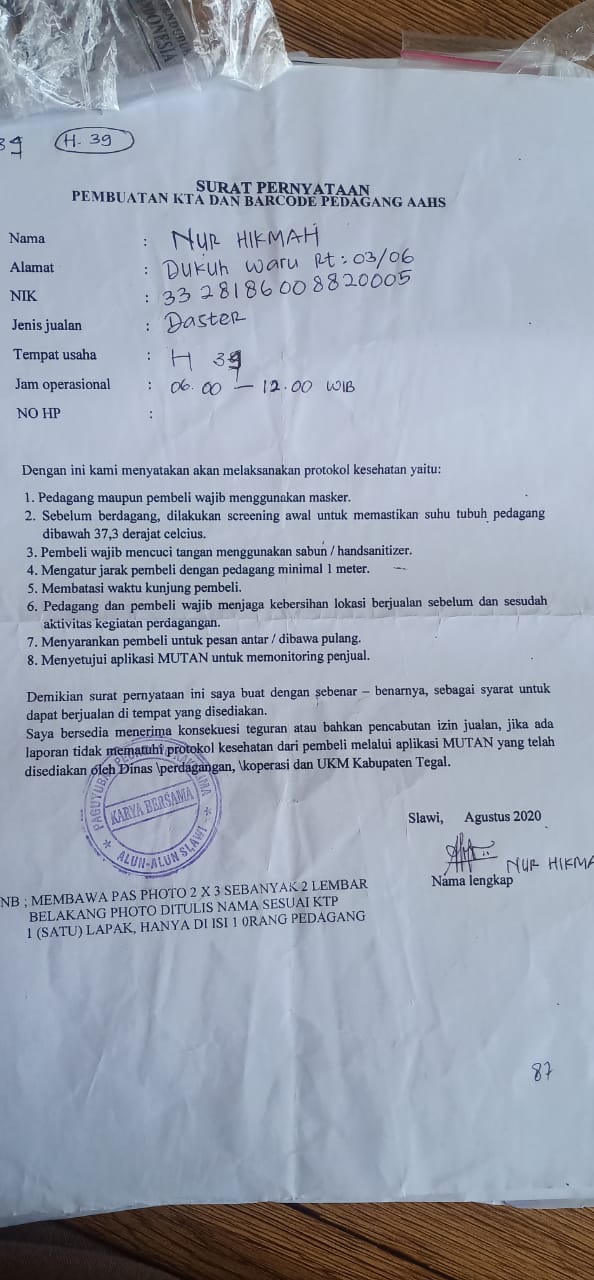 39
H. 39
SURAT PERNYATAAN
PEMBUATAN KTA DAN BARCODE PEDAGANG AAHS
Nama : NUR HIKMAH
Alamat : Dukuh waru Rt : 03/06
NIK : 33 2818600 8820005
Jenis jualan : Daster
Tempat usaha : H 39
Jam operasional : 06.00 – 12.00 WIB
NO HP :
Dengan ini kami menyatakan akan melaksanakan protokol kesehatan yaitu:
1. Pedagang maupun pembeli wajib menggunakan masker.
2. Sebelum berdagang, dilakukan screening awal untuk memastikan suhu tubuh pedagang
dibawah 37,3 derajat celcius.
3. Pembeli wajib mencuci tangan menggunakan sabun / handsanitizer.
4. Mengatur jarak pembeli dengan pedagang minimal 1 meter.
5. Membatasi waktu kunjung pembeli.
6. Pedagang dan pembeli wajib menjaga kebersihan lokasi berjualan sebelum dan sesudah
aktivitas kegiatan perdagangan.
7. Menyarankan pembeli untuk pesan antar / dibawa pulang.
8. Menyetujui aplikasi MUTAN untuk memonitoring penjual.
Demikian surat pernyataan ini saya buat dengan sebenar – benarnya, sebagai syarat untuk
dapat berjualan di tempat yang disediakan.
Saya bersedia menerima konsekuesi teguran atau bahkan pencabutan izin jualan, jika ada
laporan tidak mematuhi protokol kesehatan dari pembeli melalui aplikasi MUTAN yang telah
disediakan oleh Dinas \perdagangan, \koperasi dan UKM Kabupaten Tegal.
KARYA BERSAMA
ALUN-ALUN SLAWI
Slawi, Agustus 2020
NUR HIKMA
Nama lengkap
NB ; MEMBAWA PAS PHOTO 2 X 3 SEBANYAK 2 LEMBAR
BELAKANG PHOTO DITULIS NAMA SESUAI KTP
1 (SATU) LAPAK, HANYA DI ISI 1 0RANG PEDAGANG
87